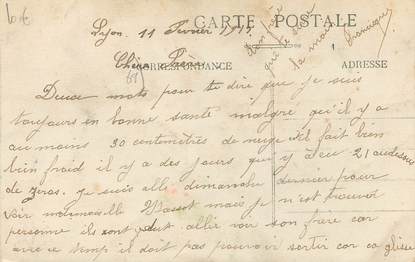 60€
Lyon. 11 Fevrier 1915.
CARTE POSTALE
Chère
CORRESPONDANCE
ADRESSE
Deux mots pour te dire que je suis
toujours en bonne santé malgré qu'il y a
au moins 30 centimètres de neige il fait bien
bien froid il y a des jours qui y a eu 21 au desous
de zéros. je suis allé dimanche dernier pour
voir mademoiselle mais je n'est trouver
personne ils sont allér voir son frère car
avec ce temp il doit pas pouvoir sortir car ca glisse